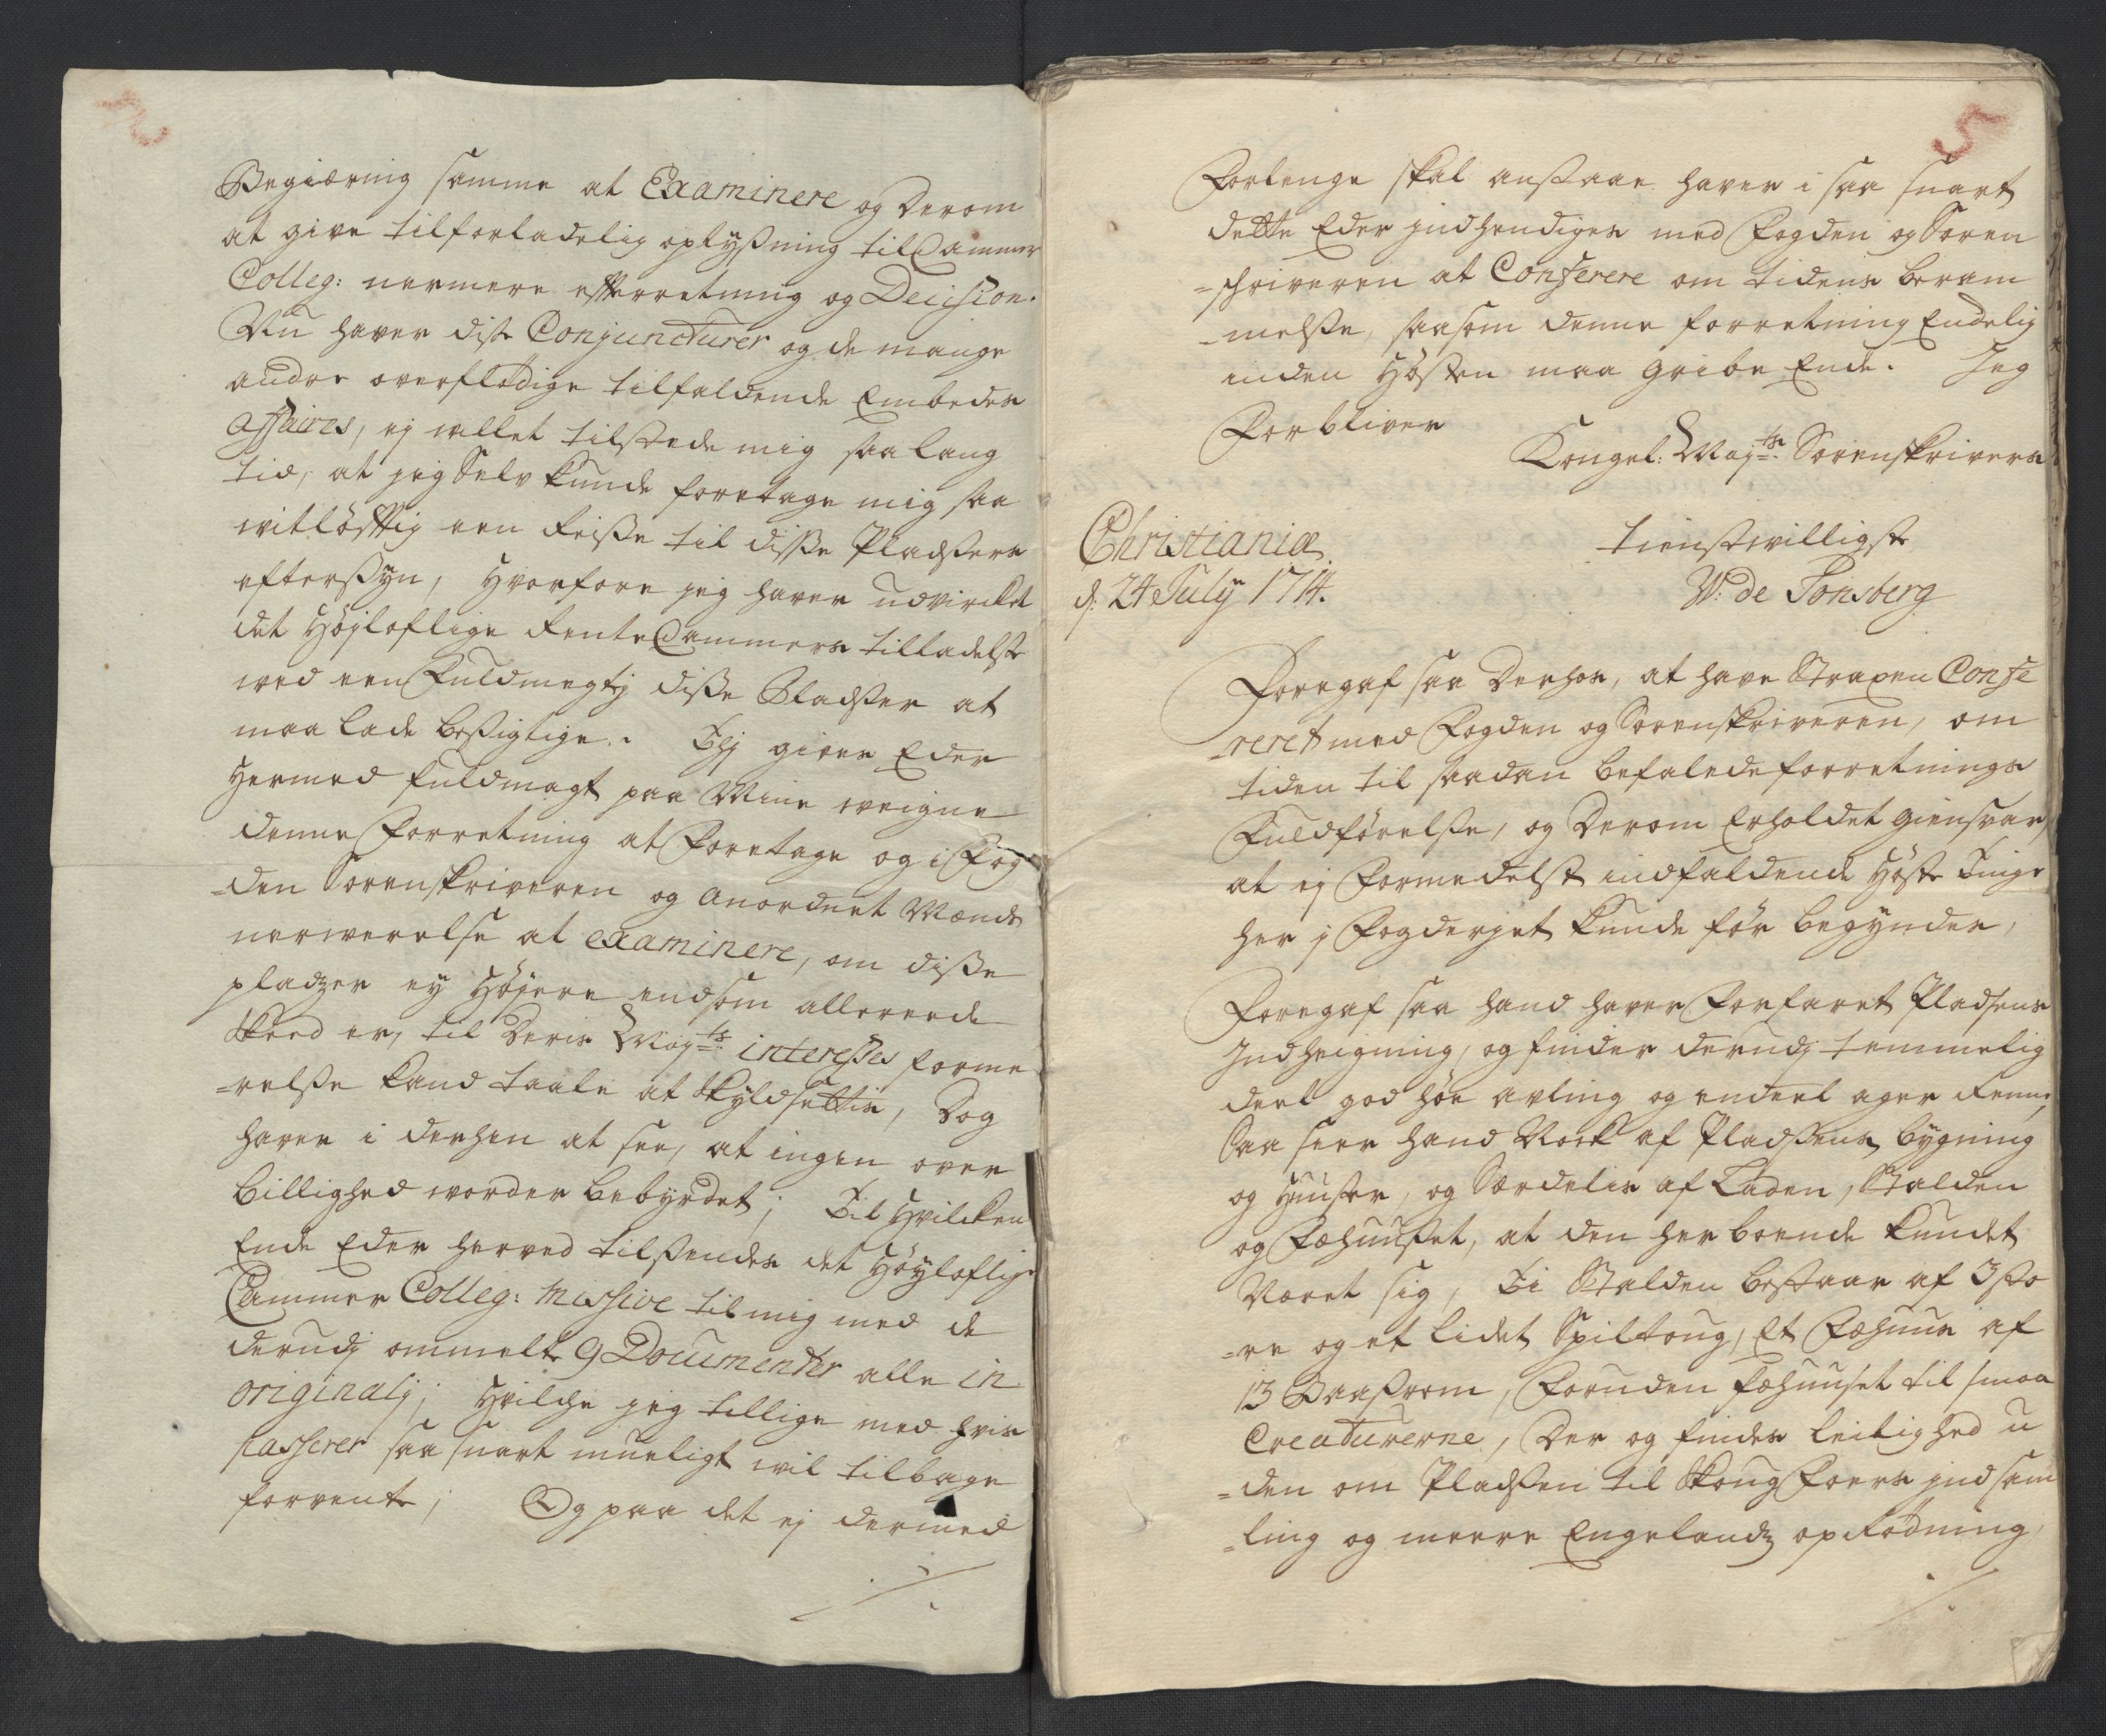 Begiæring samme at Examinere og derom
at give tilforladelig oplyßning til Cammer
Colleg: nermere efterretning og Decision.
Nu haver diße Conjuncturer og de mange
andre overflödige tilfaldende Embedes
affaires, ej villet tilstede mig saa lang
tid, at jeg Selv kunde foretage mig saa
vitlöftig een Reiße til diße Pladßers
efterßyn, Hvorfore jeg haver udvirket
det Höjloflige Rente Cammers tilladelse
ved een Fuldmegtig diße Pladßer at
maa lade beßigtige. Thj gives Eder
Hermed fuldmagt paa Mine veigne
denne Forretning at Foretage og i Fog
=den Sorenskriveren og anordnet Mænds
nerverelse at examinere, om diße
pladzer ey Höjere end som allerrede
skeed er, til Deris Mayts interesses forme
=relße kand taale at skyldsettis, Dog
haver i derhen at see, at ingen over
billighed vorder bebyrdet; Til Hvilcken
Ende Eder herved tilßendes det Höyloflige
Cammer Colleg: Missive til mig med de
derudj ommelte 9 Documenter alle in
originalj; Hvilche jeg tillige med hvis
passerer saa snart mueligt vil tilbage
forvente; Og paa det ej dermed
./.
5
Forlenge skal anstaae haver i saa snart
dette Eder indhendiges med Fogden og Soren
=schriveren at Conferere om tidens beram
=melße, saasom denne forretning Endelig
inden Hösten maa gribe Ende. Jeg
Forbliver
Kongel: Mayts Sorenskrivers
Christiania
d: 24 July 1714.
tienstvilligste
W: de Tonsberg
Foregaf saa Derhos, at have Straxen Confe
=reret med Fogden og Sorenskriveren, om
tiden til saadan befalede forretnings
Fuldförelße, og Derom Erholdet giensvar,
at ej Formedelst indfaldende Höste Tinge
her j Fogderjet kunde för begyndes,
Foregaf saa hand haver Forfaret Pladsens
Indheigning, og finder derudj temmelig
deel god höe avling og endeel ager Renne,
Saa seer hand Nock af Pladßens bygning
og Huußer, og Særdelis af Laden, Stalden
og Fæhuußet, at den her boende kundet
Næret sig, Ti Stalden bestaar af 3 sto
=re og et lidet Spiltoug, Et Fæhuus af
13 Baaßrom, Foruden fæhuuset til smaa
Creaturerne, Der og findes leilighed u
=den om Pladßen til Skoug Foers indsam
=ling og meere Engelandz oprödning,
./.